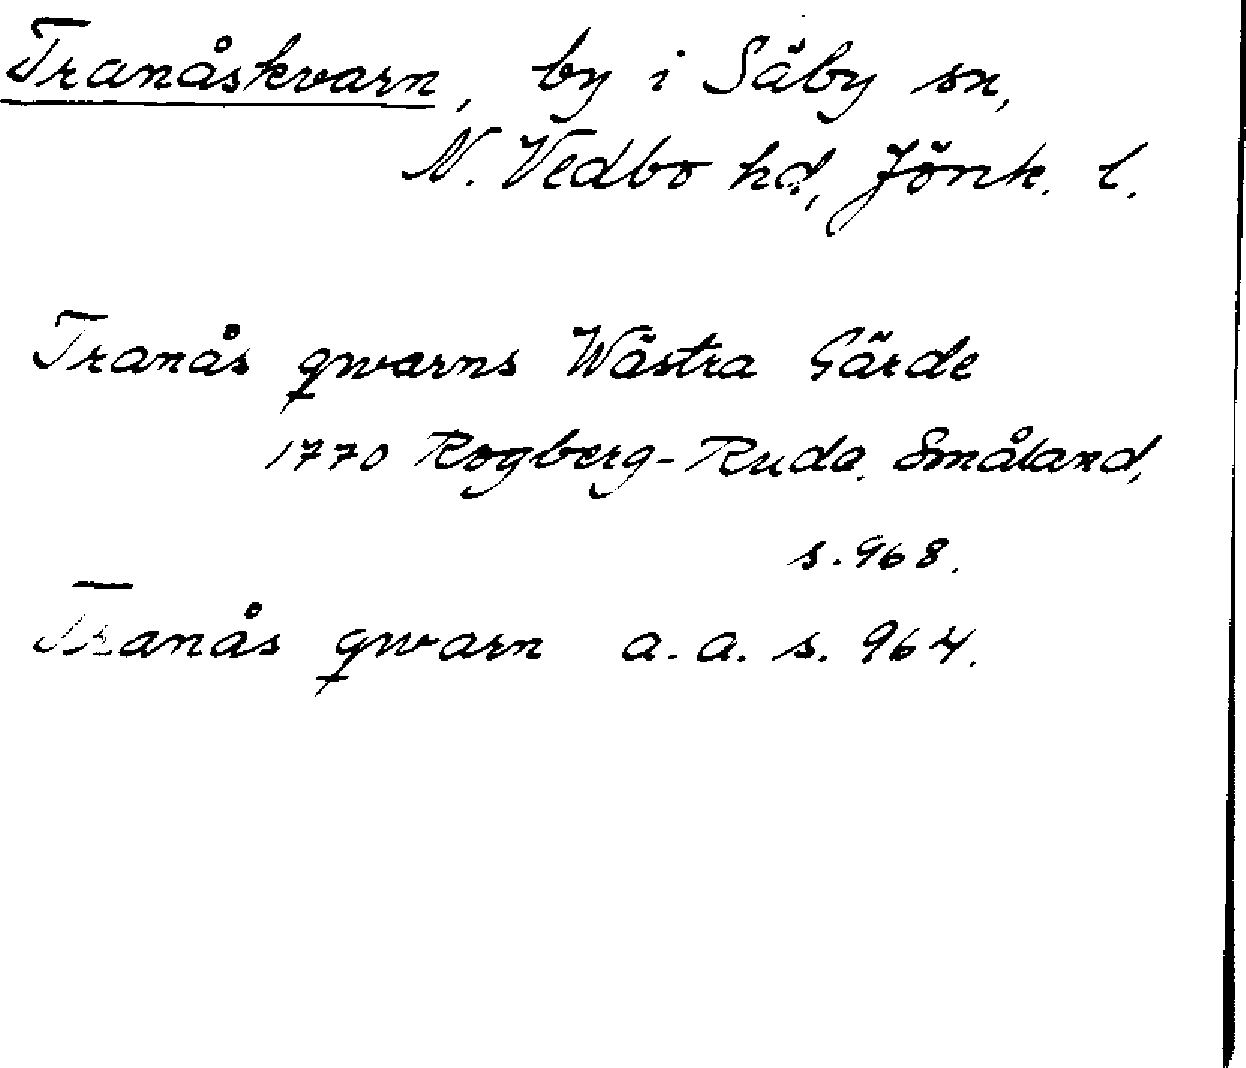 Tranåskvarn, by i Säby sn,
N. Vedbo hd, Jönk. l.
Tranås qwarns Wästra Gärde
1770 Rogberg-Ruda, Småland,
s. 968.
Tranås qwarn a. a. s. 964.